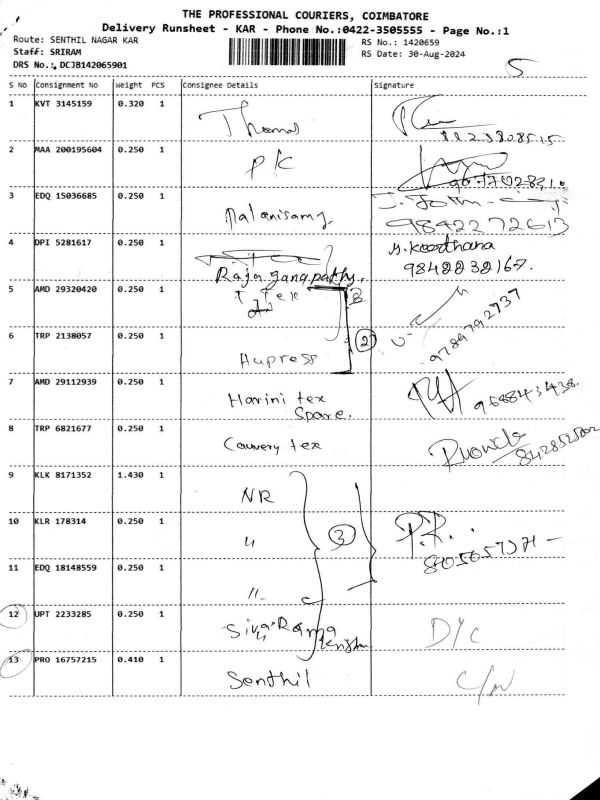 THE PROFESSIONAL COURIERS, COIMBATORE
Delivery Runsheet - KAR - Phone No.:0422-3505555 - Page No.:1
Route: SENTHIL NAGAR KAR
RS No.: 1420659
Staff: SRIRAM
RS Date: 30-Aug-2024
DRS No.: DCJB142065901
5
S No Consignment No Weight PCS Consignee Details Signature
1 KVT 3145159 0.320 1 Thomas
2 MAA 200195604 0.250 1 PK
3 EDQ 15036685 0.250 1 Palanisamy J. John
9842272613
4 DPI 5281617 0.250 1 Raja ganapathy. M. Keerthana
9842232167.
5 AMD 29320420 0.250 1 Tex
9789792737
6 TRP 2138057 0.250 1 Aupress 2
7 AMD 29112939 0.250 1 Harini tex
Spare.
8 TRP 6821677 0.250 1 Cauvery tex
9 KLK 8171352 1.430 1 NR
10 KLR 178314 0.250 1 " 3 P.R.
11 EDQ 18148559 0.250 1 "
12 UPT 2233285 0.250 1 Siva Rama D/C
13 PRO 16757215 0.410 1 Senthil C/N